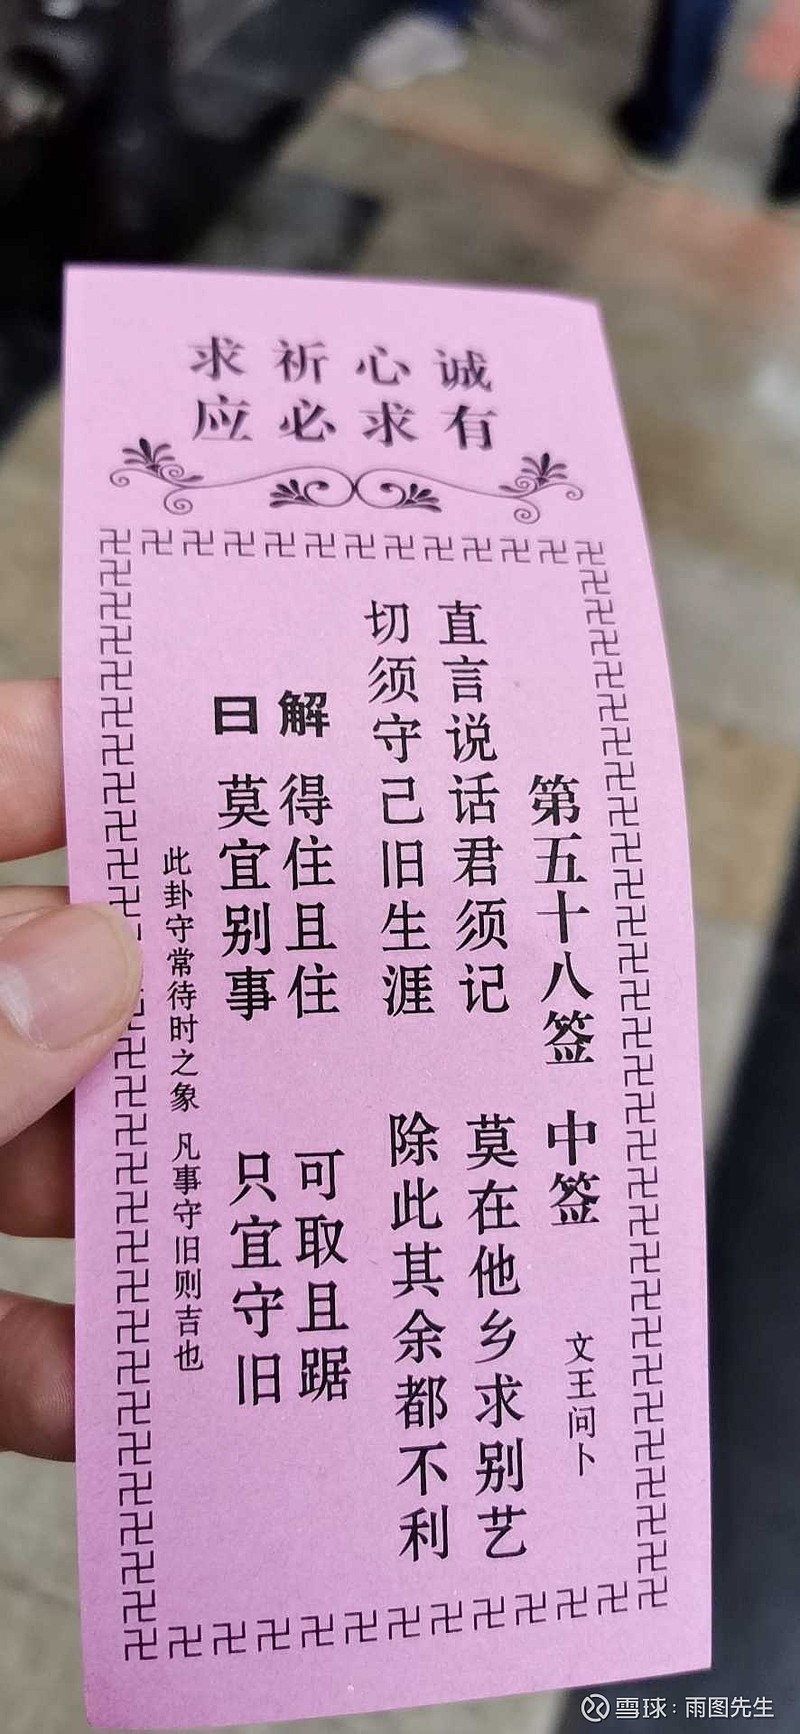 诚心祈求
有求必应
第五十八签 中签 文王问卜
直言说话君须记 莫在他乡求别艺
切须守己旧生涯 除此其余都不利
解曰
得住且住 可取且踞
莫宜别事 只宜守旧
此卦守常待时之象 凡事守旧则吉也
雪球：雨图先生